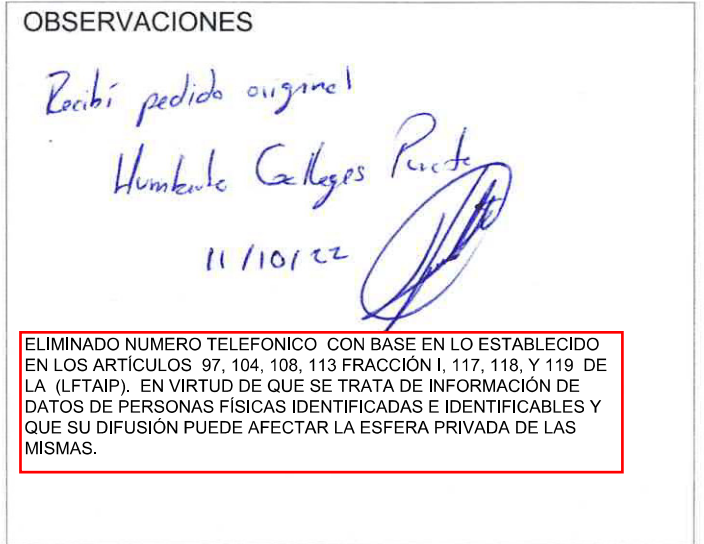 OBSERVACIONES
Recibí pedido original
Humberto Gallegos
11/10/22
ELIMINADO NUMERO TELEFONICO CON BASE EN LO ESTABLECIDO
EN LOS ARTÍCULOS 97, 104, 108, 113 FRACCIÓN I, 117, 118, Y 119 DE
LA (LFTAIP). EN VIRTUD DE QUE SE TRATA DE INFORMACIÓN DE
DATOS DE PERSONAS FÍSICAS IDENTIFICADAS E IDENTIFICABLES Y
QUE SU DIFUSIÓN PUEDE AFECTAR LA ESFERA PRIVADA DE LAS
MISMAS.